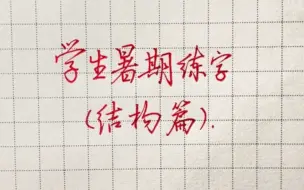 学生暑期练字
(结构篇).